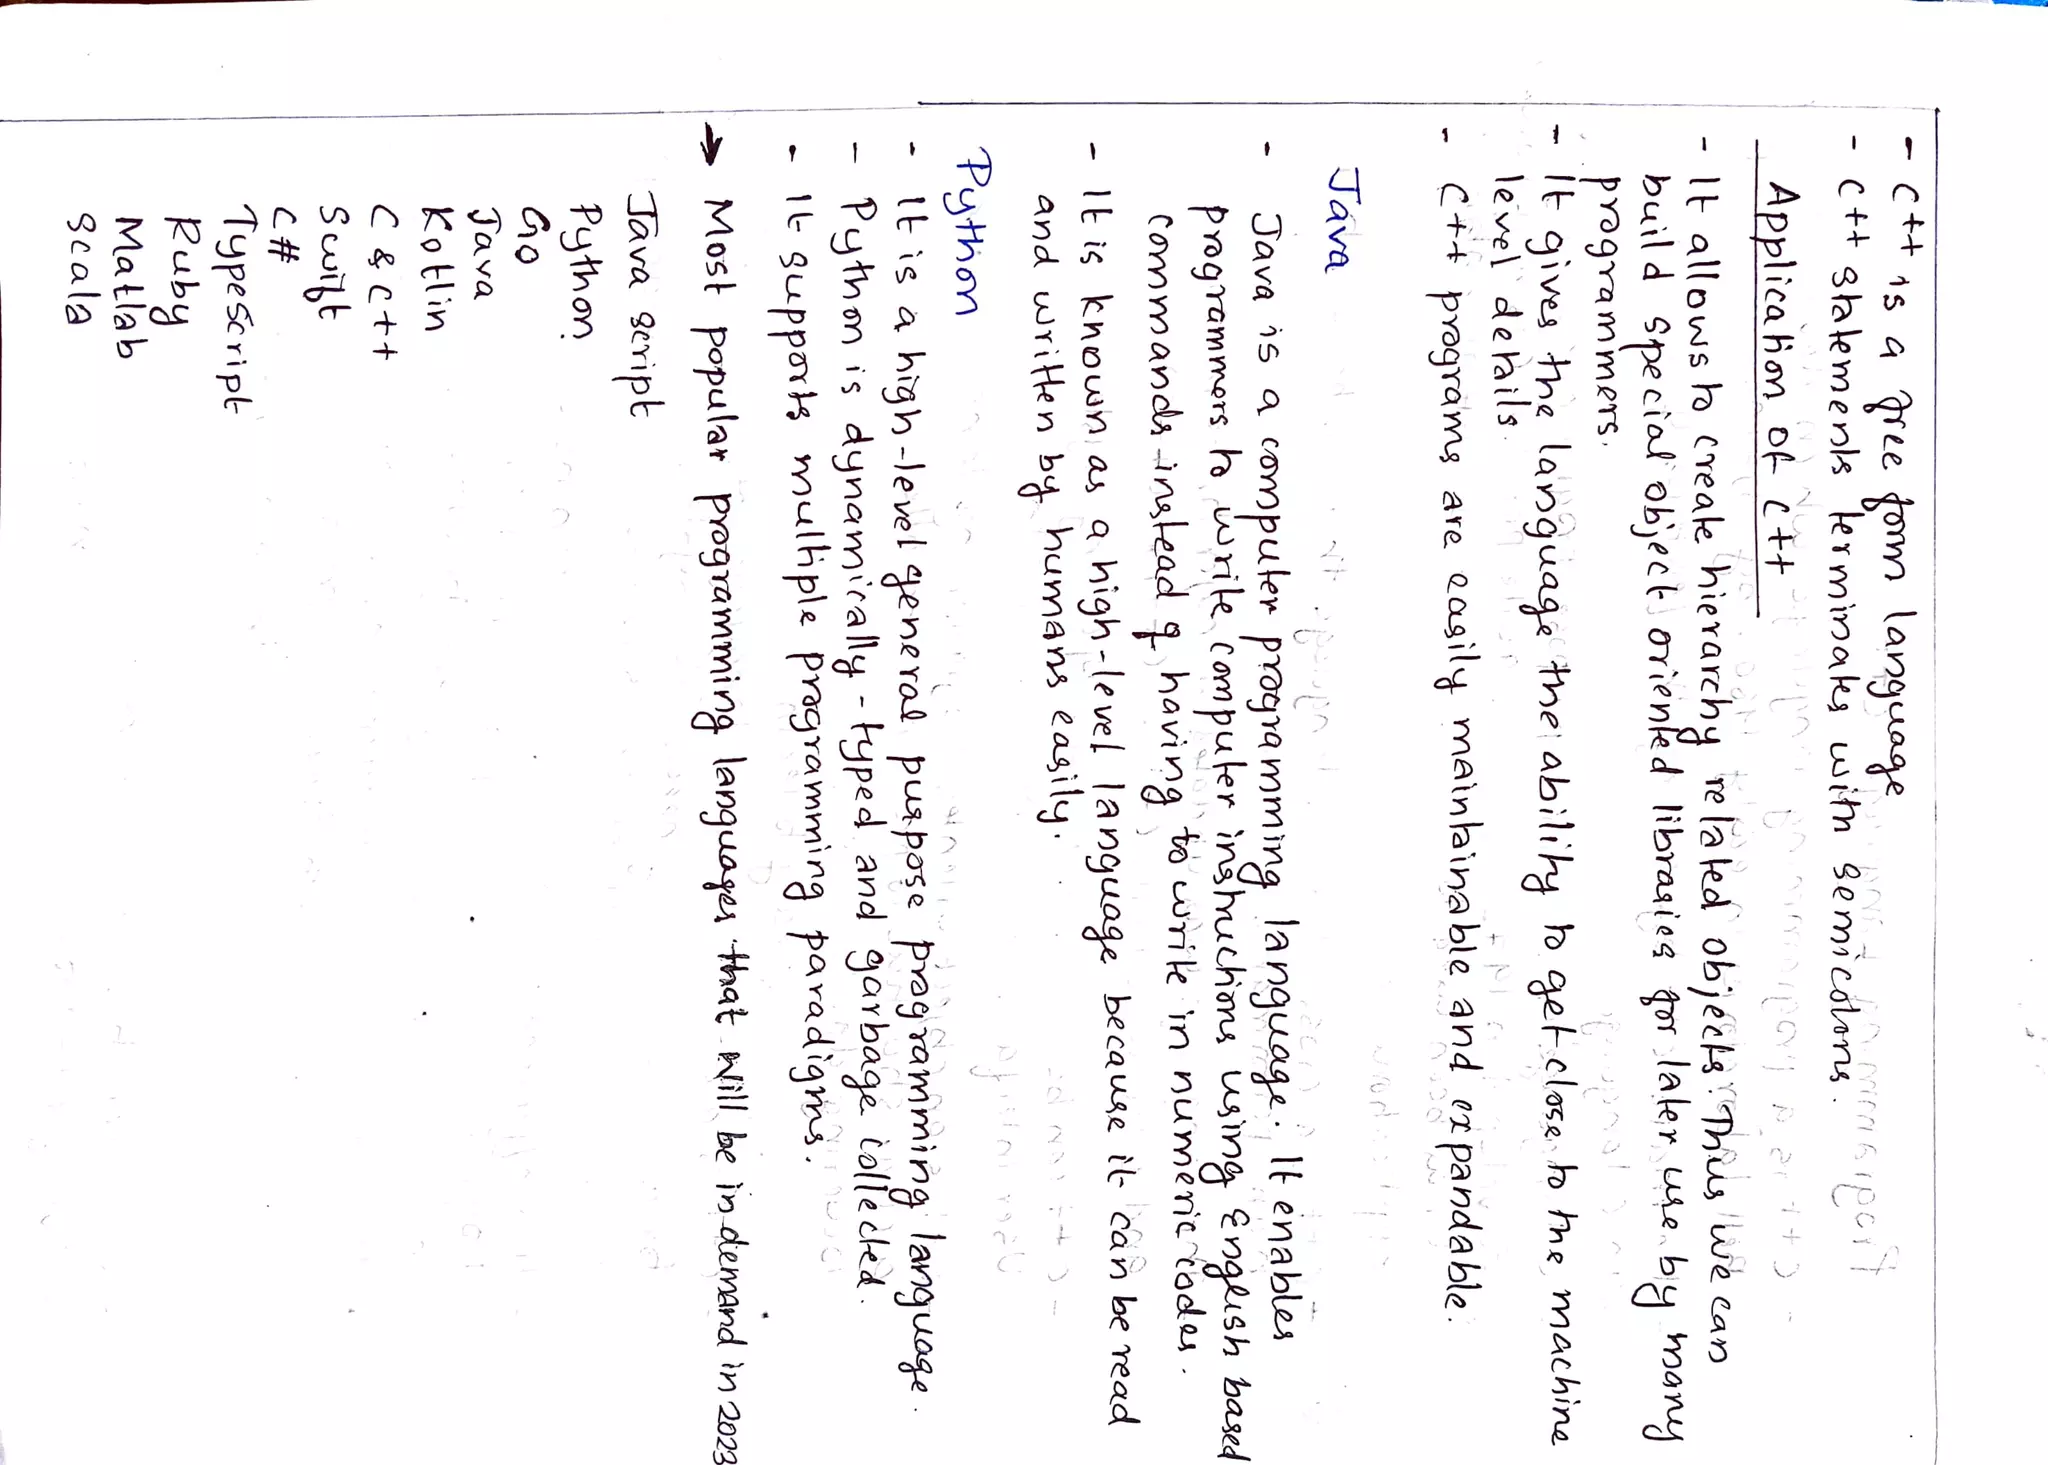 - C++ is a free form language
- C++ statements terminates with semicolons.
Application of C++
- It allows to create hierarchy related objects. Thus we can
build special object oriented libraries for later use by many
programmers.
- It gives the language the ability to get close to the machine
level details.
- C++ programs are easily maintainable and expandable.
Java
- Java is a computer programming language. It enables
programmers to write computer instructions using English based
commands instead of having to write in numeric codes.
- It is known as a high-level language because it can be read
and written by humans easily.
Python
- It is a high-level general purpose programming language.
- Python is dynamically-typed and garbage collected.
- It supports multiple programming paradigms.
→ Most popular programming languages that will be in demand in 2023
Java script
Python
Go
Java
Kotlin
C & C++
Swift
C#
TypeScript
Ruby
Matlab
Scala